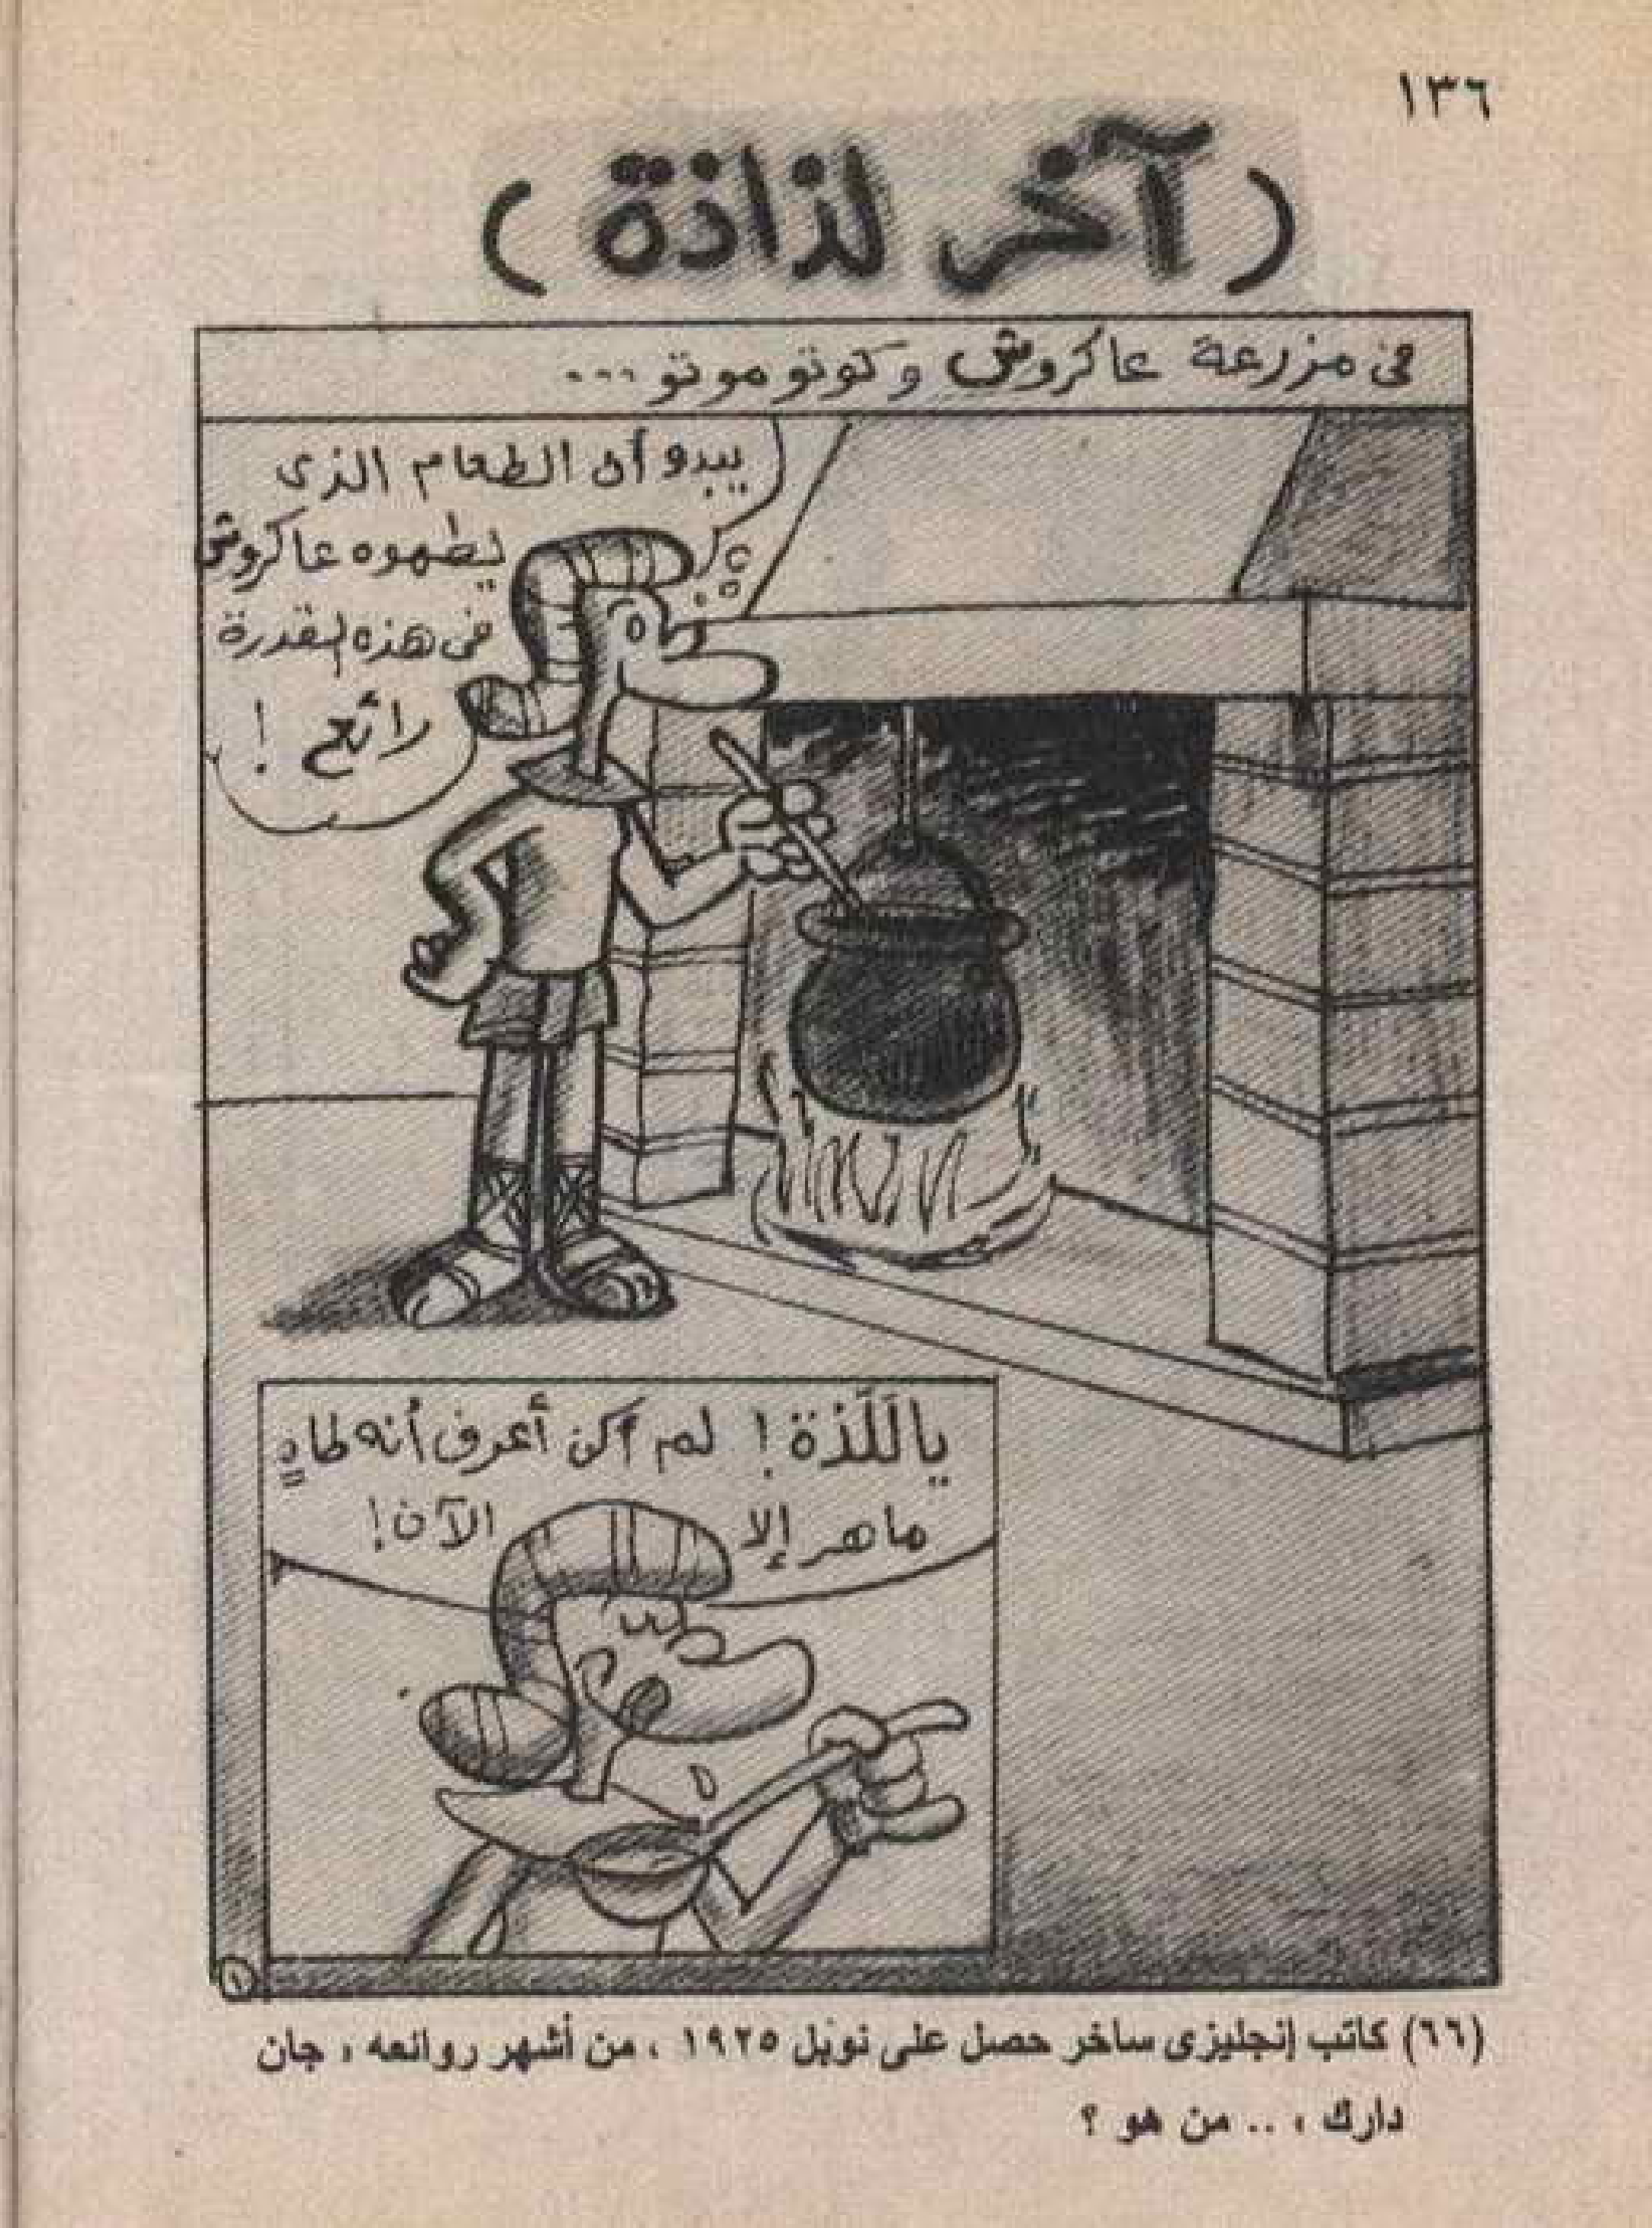 ١٣٦
( آخر لذاذة )
فى مزرعة عاكروش وكوتوموتو ...
يبدو أن الطعام الذى
يطهوه عاكروش
فى هذه القدرة
رائع !
ياللَّذة ! لم أكن أعرف أنه طاهٍ
ماهر إلا الآن !
١
(٦٦) كاتب إنجليزى ساخر حصل على نوبل ١٩٢٥ ، من أشهر روائعه ، جان
دارك ، .. من هو ؟